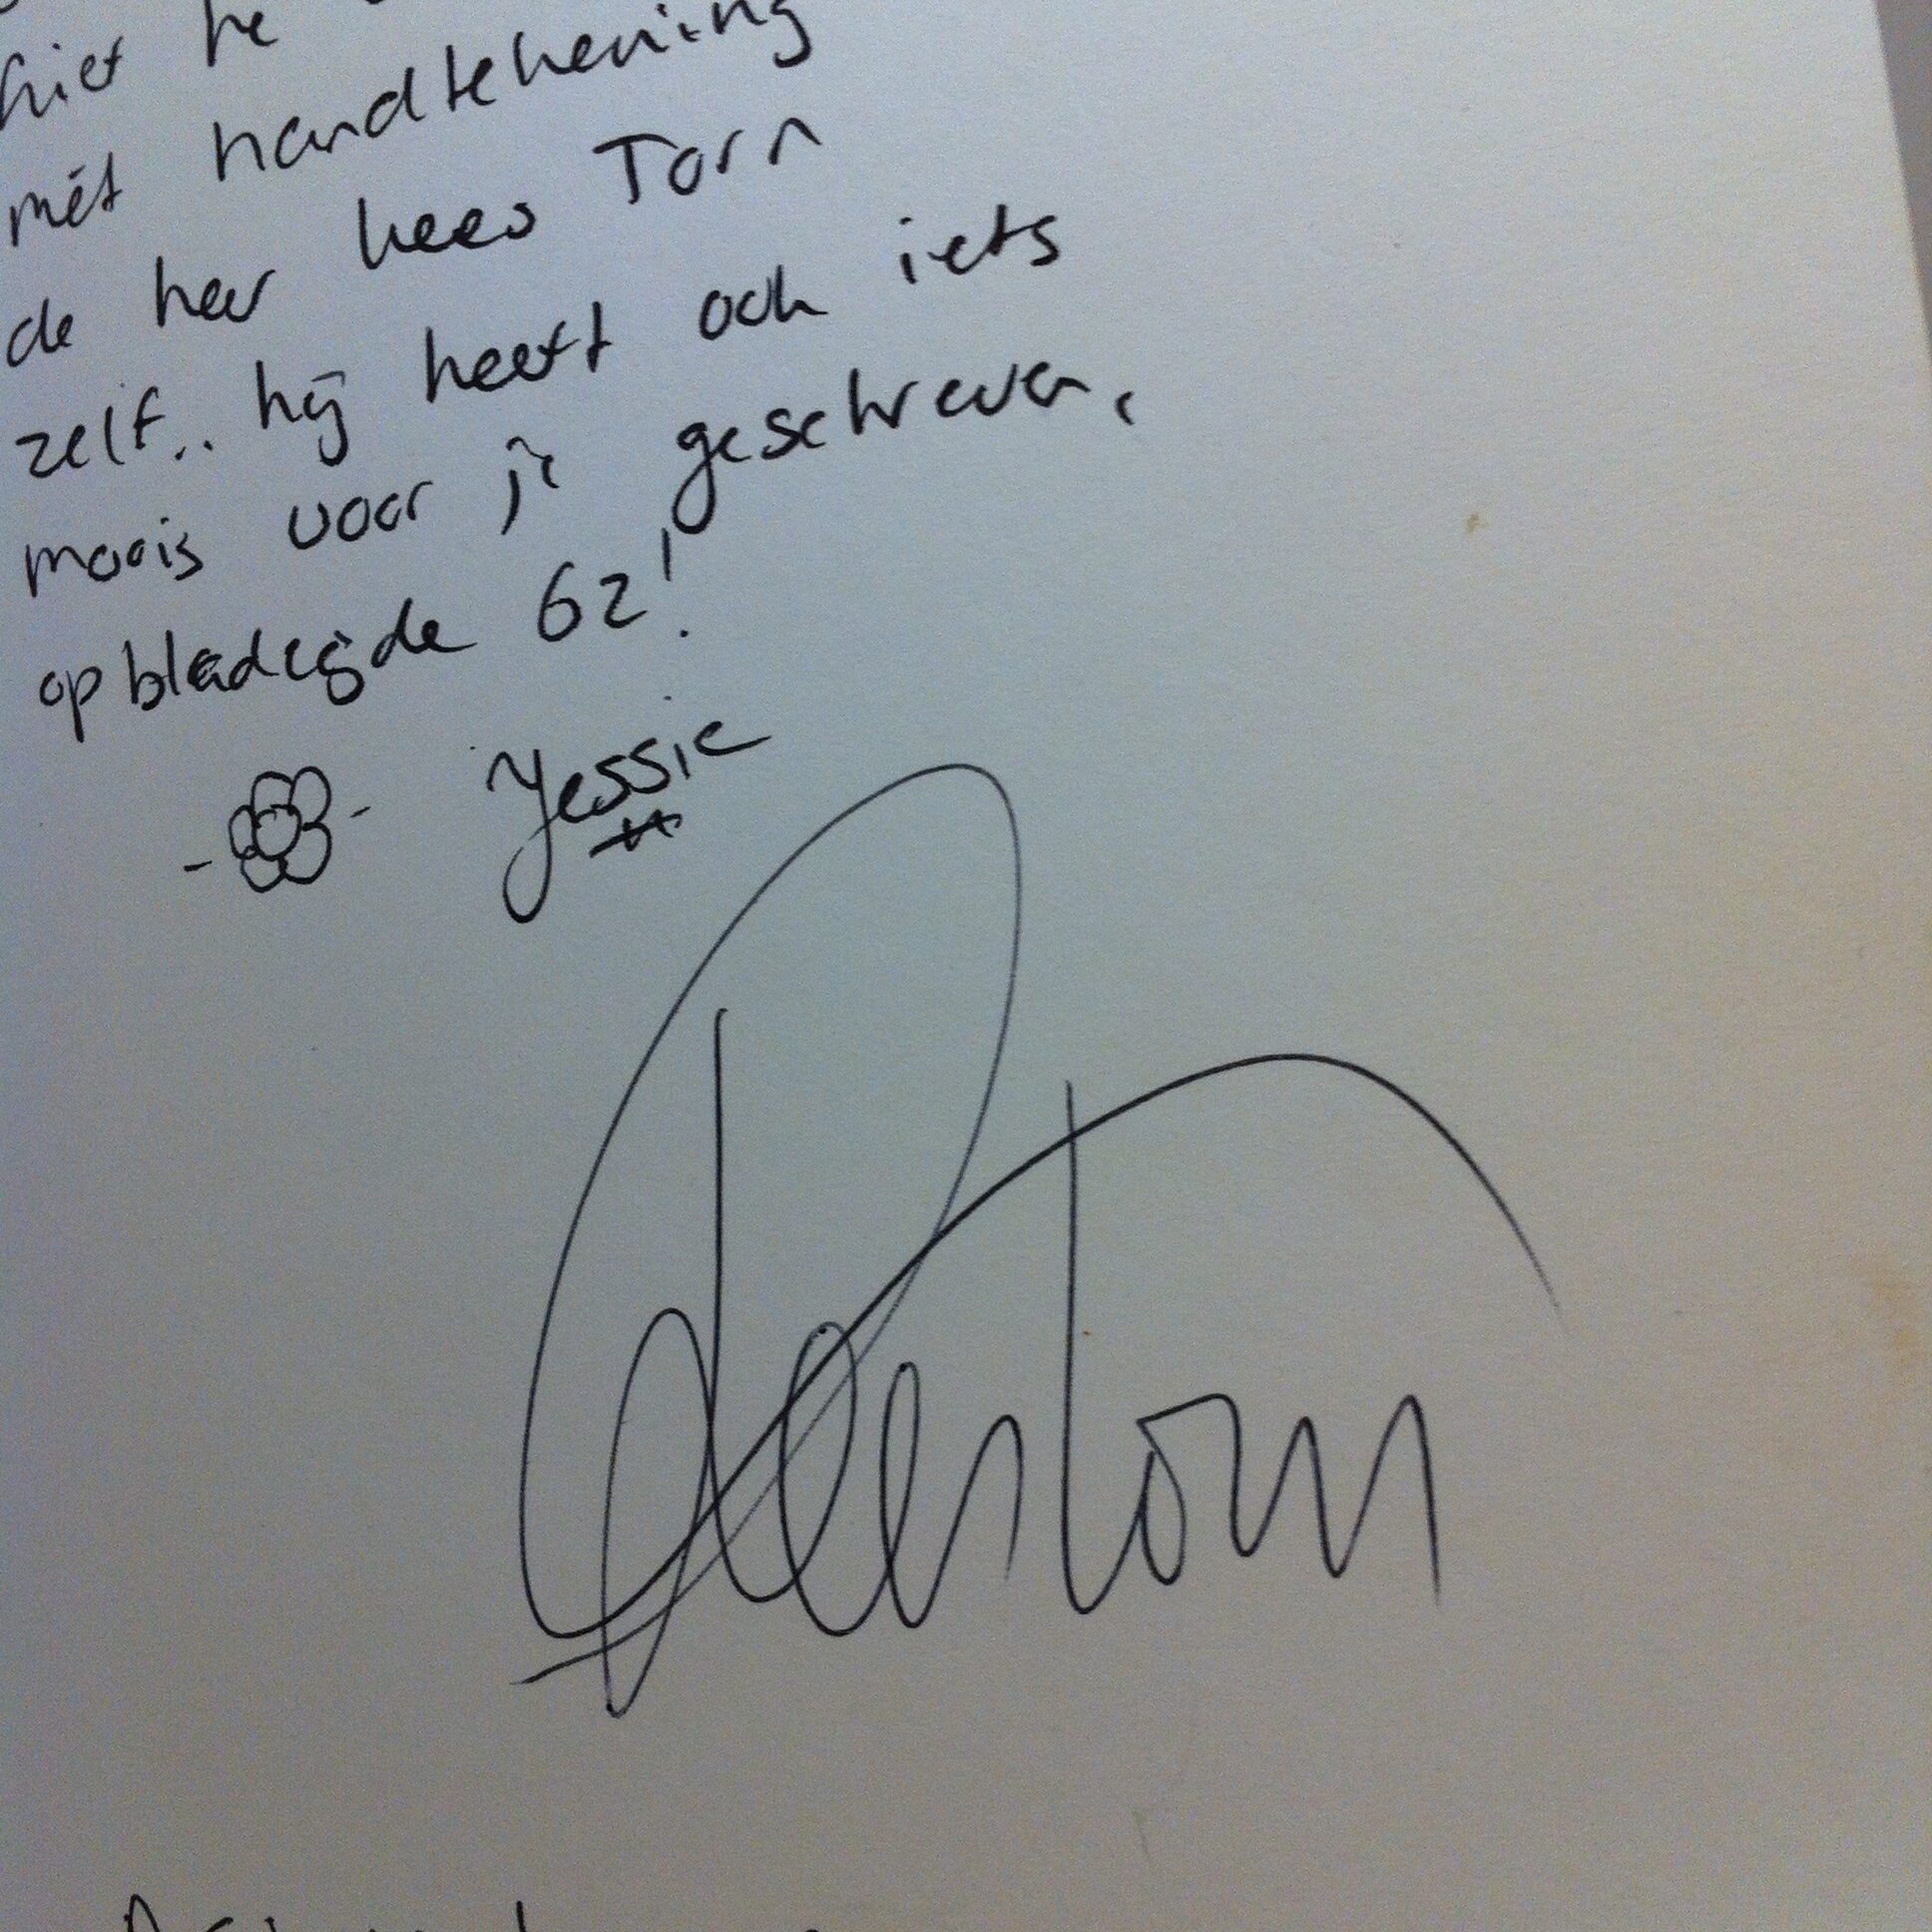 hier he
mét handtekening
de heer Kees Torn
zelf.. hij heeft ook iets
moois voor je geschreven,
op bladzijde 62!
Yessie
Kees Torn